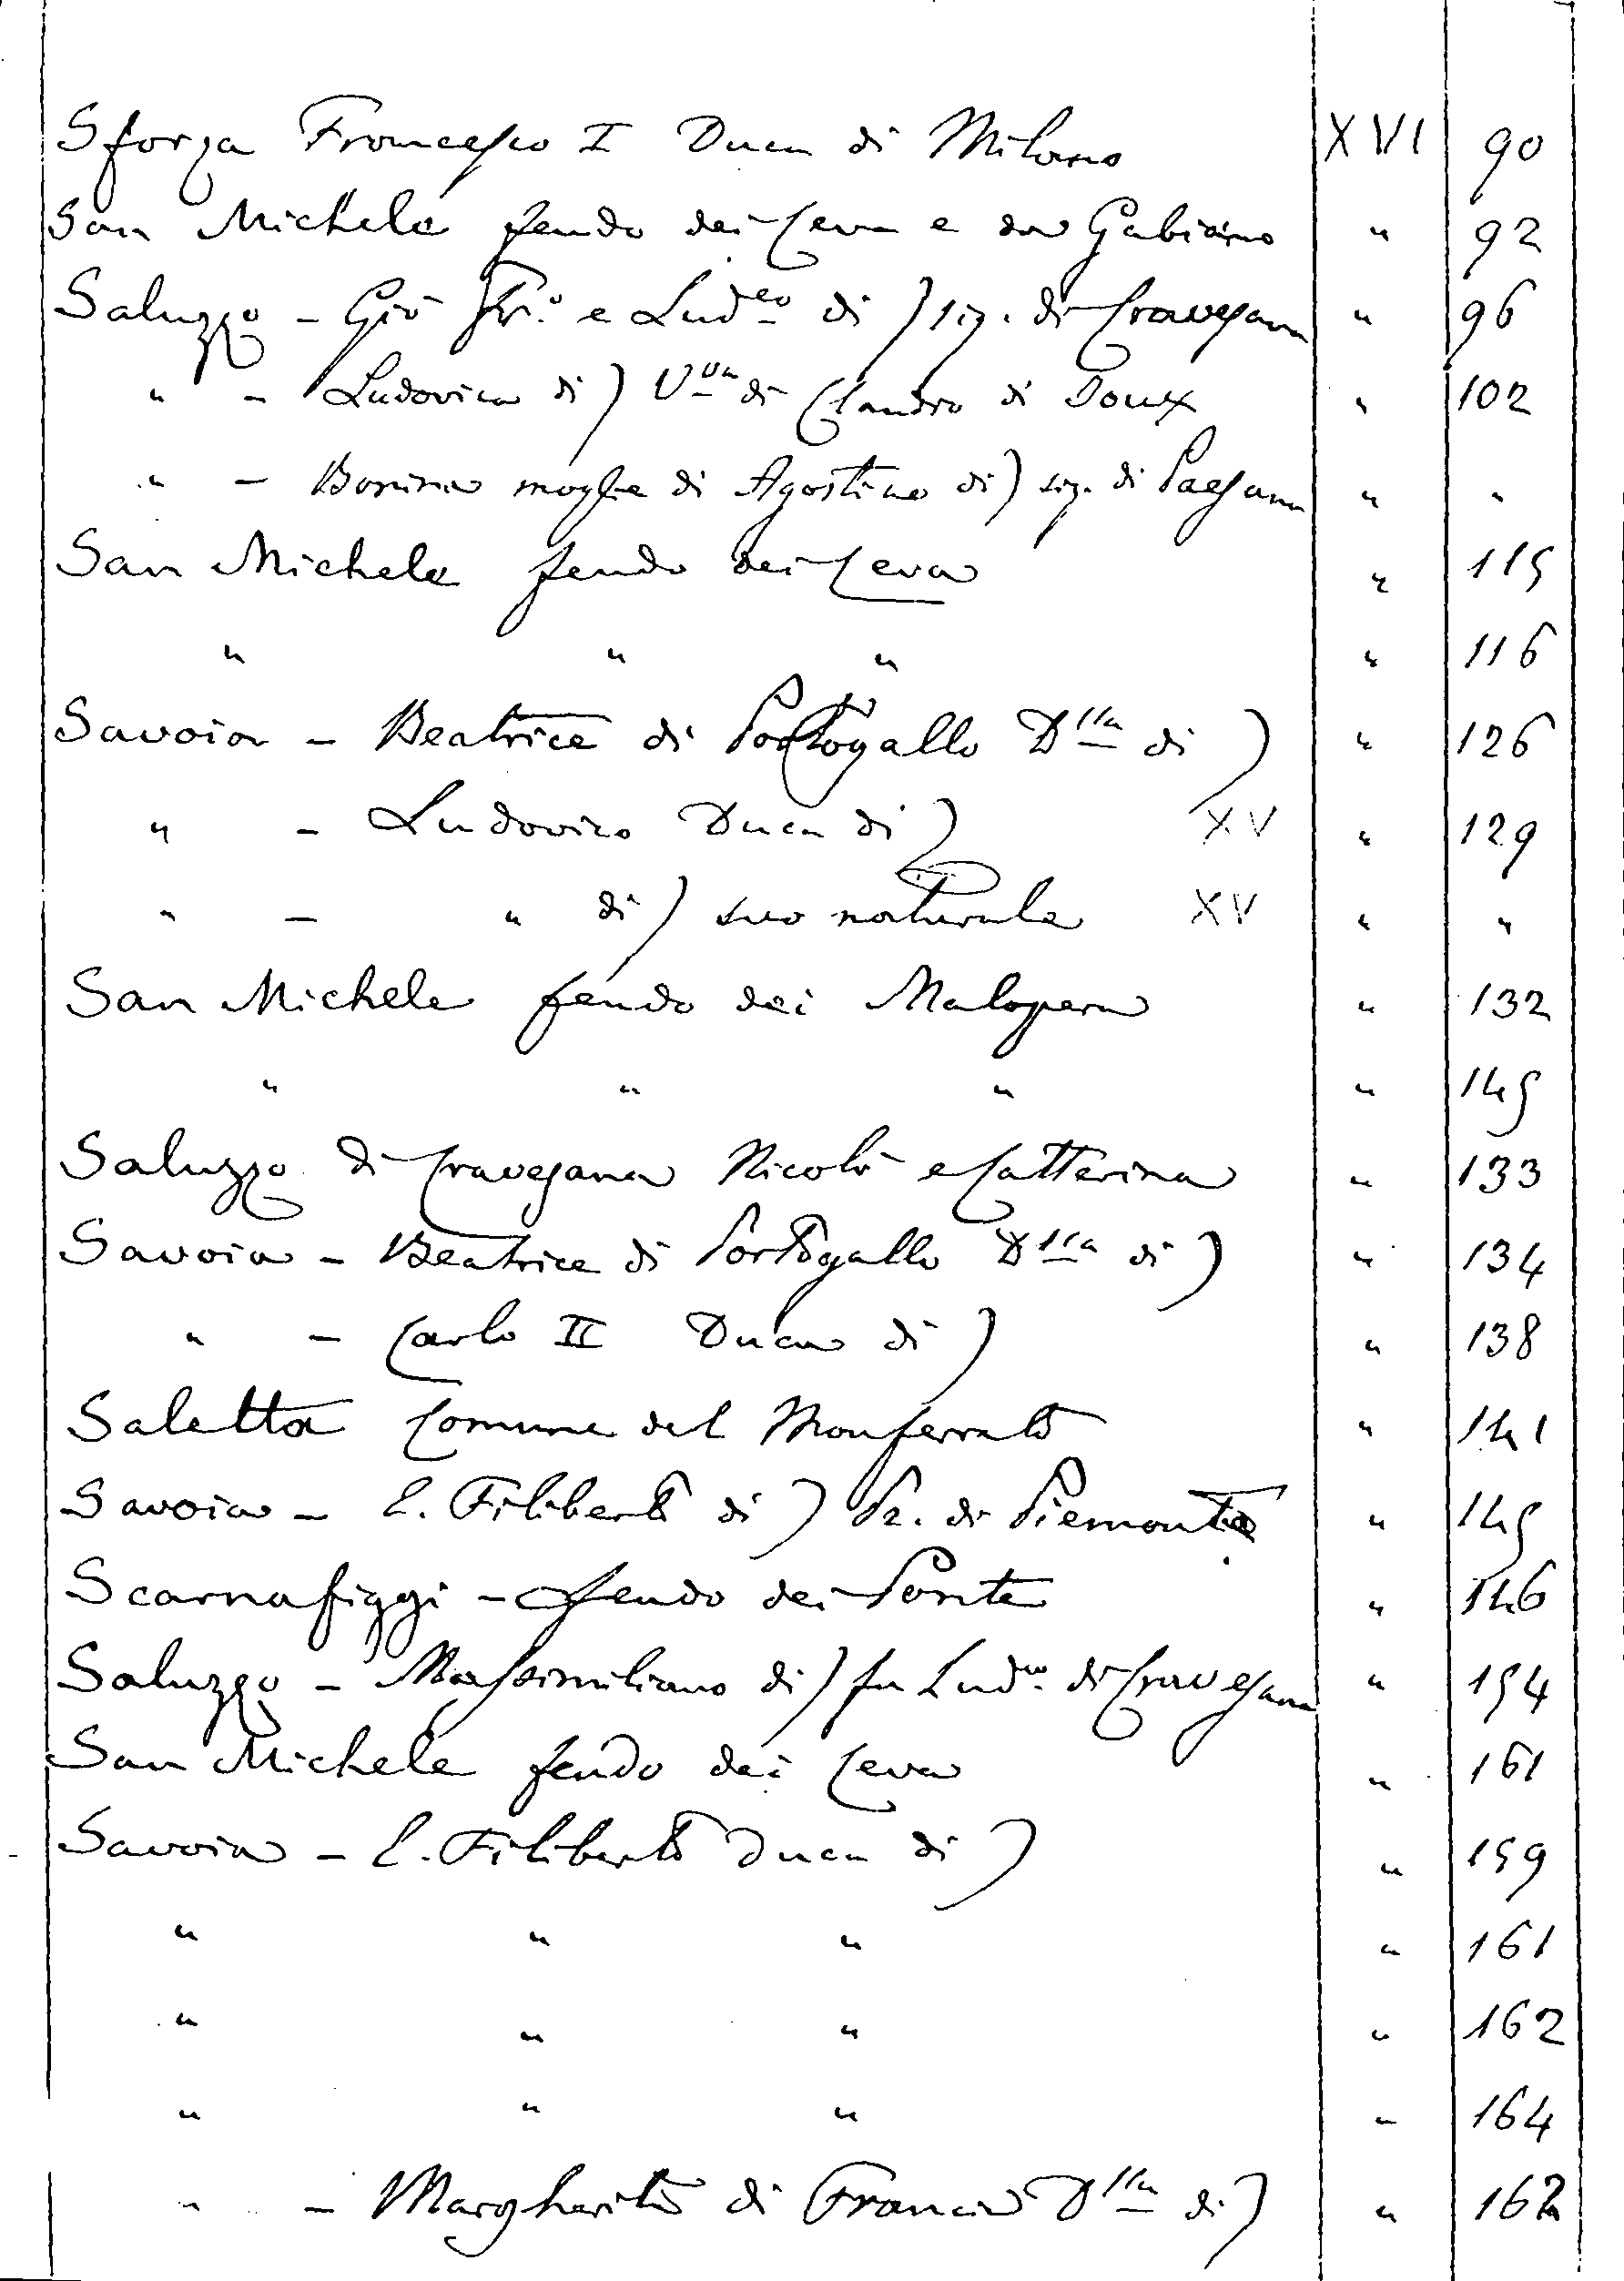 Sforza Francesco I Duca di Milano XVI 90
San Michele feudo dei Ceva e da Gabiano " 92
Saluzzo - Giò Fr.º e Lud.co di ) sig. di Cravesana " 96
" - Ludovica di ) V.va di Claudio di Doux " 102
" - Bonina moglie di Agostino di ) sig. di Paesana " "
San Michele feudo dei Ceva " 115
" " " " 116
Savoia - Beatrice di Portogallo D.ssa di ) " 126
" - Ludovico Duca di ) XV " 129
" - " di ) suo naturale XV " "
San Michele feudo dei Malopera " 132
" " " " 145
Saluzzo di Cravesana Nicolò e Catterina " 133
Savoia - Beatrice di Portogallo D.ssa di ) " 134
" - Carlo II Duca di ) " 138
Saletta Comune del Monferrato " 141
Savoia - E. Filiberto di ) Pr. di Piemonte " 145
Scarnafiggi - feudo dei Ponte " 146
Saluzzo - Massimiliano di ) fu Lud.co di Cravesana " 154
San Michele feudo dei Ceva " 161
Savoia - E. Filiberto Duca di ) " 159
" " " " 161
" " " " 162
" " " " 164
" - Margherita di Francia D.ssa di ) " 162